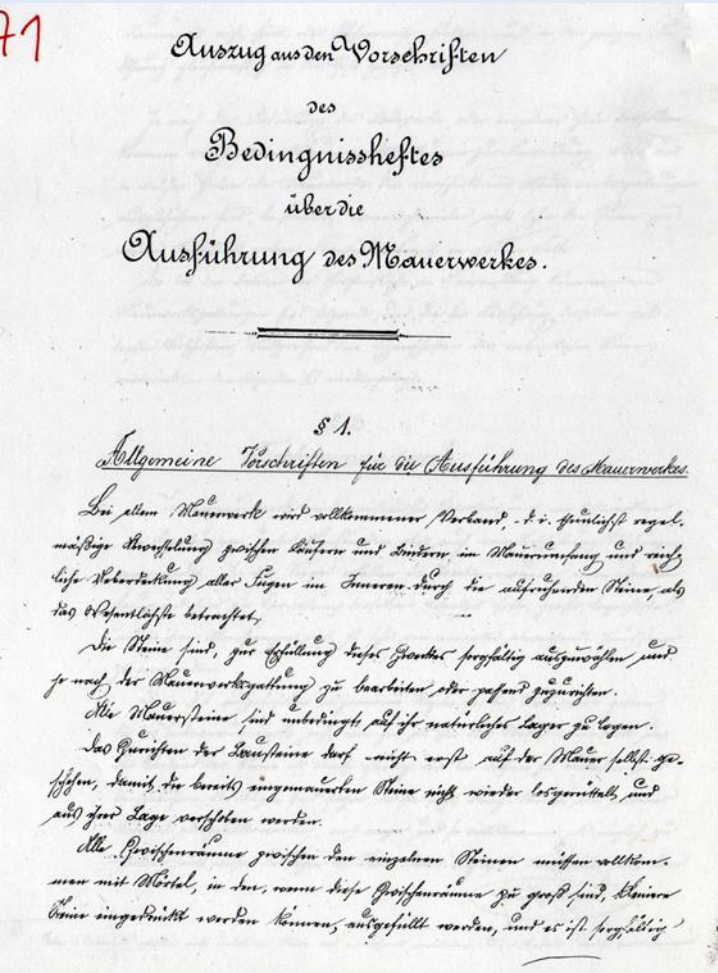 71
Auszug aus den Vorschriften
des
Bedingnissheftes
über die
Ausführung des Mauerwerkes.
§ 1.
Allgemeine Vorschriften für die Ausführung des Mauerwerkes.
Bei allem Mauerwerk wird vollkommener Verband, d. i. thunlichst regel-
mäßige Abwechslung zwischen Läufern und Bindern im Mauerumfang und reich-
liche Ueberdeckung aller Fugen im Inneren durch die aufruhenden Steine, als
das Wesentlichste betrachtet.
Die Steine sind, zur Erfüllung dieses Zweckes sorgfältig auszuwählen und
je nach der Mauerwerksgattung zu bearbeiten oder passend zuzurichten.
Alle Mauersteine sind unbedingt auf ihr natürliches Lager zu legen.
Das Zurichten der Bausteine darf nicht erst auf der Mauer selbst ge-
schehen, damit die bereits eingemauerten Steine nicht wieder losgerüttelt und
aus ihrer Lage verschoben werden.
Alle Zwischenräume zwischen den einzelnen Steinen müssen vollkom-
men mit Mörtel, in den, wenn diese Zwischenräume zu groß sind, kleinere
Steine eingedrückt werden können, ausgefüllt werden, und es ist sorgfältig